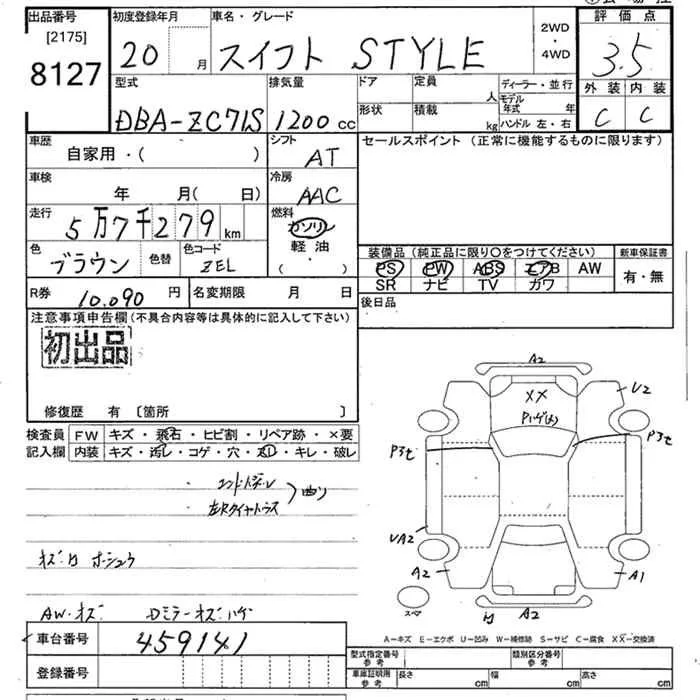 出品番号
[2175]
8127
初度登録年月
20 月
車名・グレード
スイフト STYLE
2WD
・
4WD
評価点
3.5
外装 内装
C C
型式
DBA-ZC71S
排気量
1200 cc
ドア
形状
定員 人
積載 kg
ディーラー・並行
モデル年式 年
ハンドル 左・右
車歴
自家用・( )
シフト
AT
セールスポイント (正常に機能するものに限ります)
車検
年 月(日)
冷房
AAC
走行
5万7千279 km
燃料
ガソリン
軽油
・
( )
色
ブラウン
色替
色コード
ZEL
装備品 (純正品に限り○をつけてください)
新車保証書
PS PW ABS エアB AW
SR ナビ TV カワ
有・無
R券 10,090 円
名変期限 月 日
後日品
注意事項申告欄 (不具合内容等は具体的に記入して下さい)
初出品
修復歴 有 〔箇所 〕
検査員
記入欄
FW キズ・飛石・ヒビ割・リペア跡・×要
内装 キズ・汚し・コゲ・穴・スレ・キレ・破レ
曲り
キズ有
AW・キズ Dミラーキズハゲ
A2
XX
U2
A2
A1
A2
スペア
A－キズ E－エクボ U－凹み W－補修跡 S－サビ C－腐食 XX－交換済
車台番号
459141
登録番号
型式指定番号
参考
類別区分番号
参考
車庫証明用
参考
長さ cm
幅 cm
高さ cm